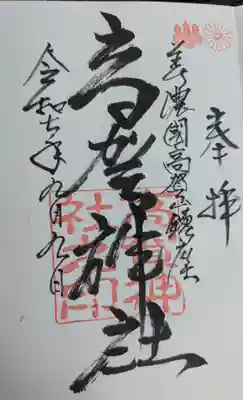 奉拝
美濃國高賀山鎮座
高賀神社
令和七年九月九日